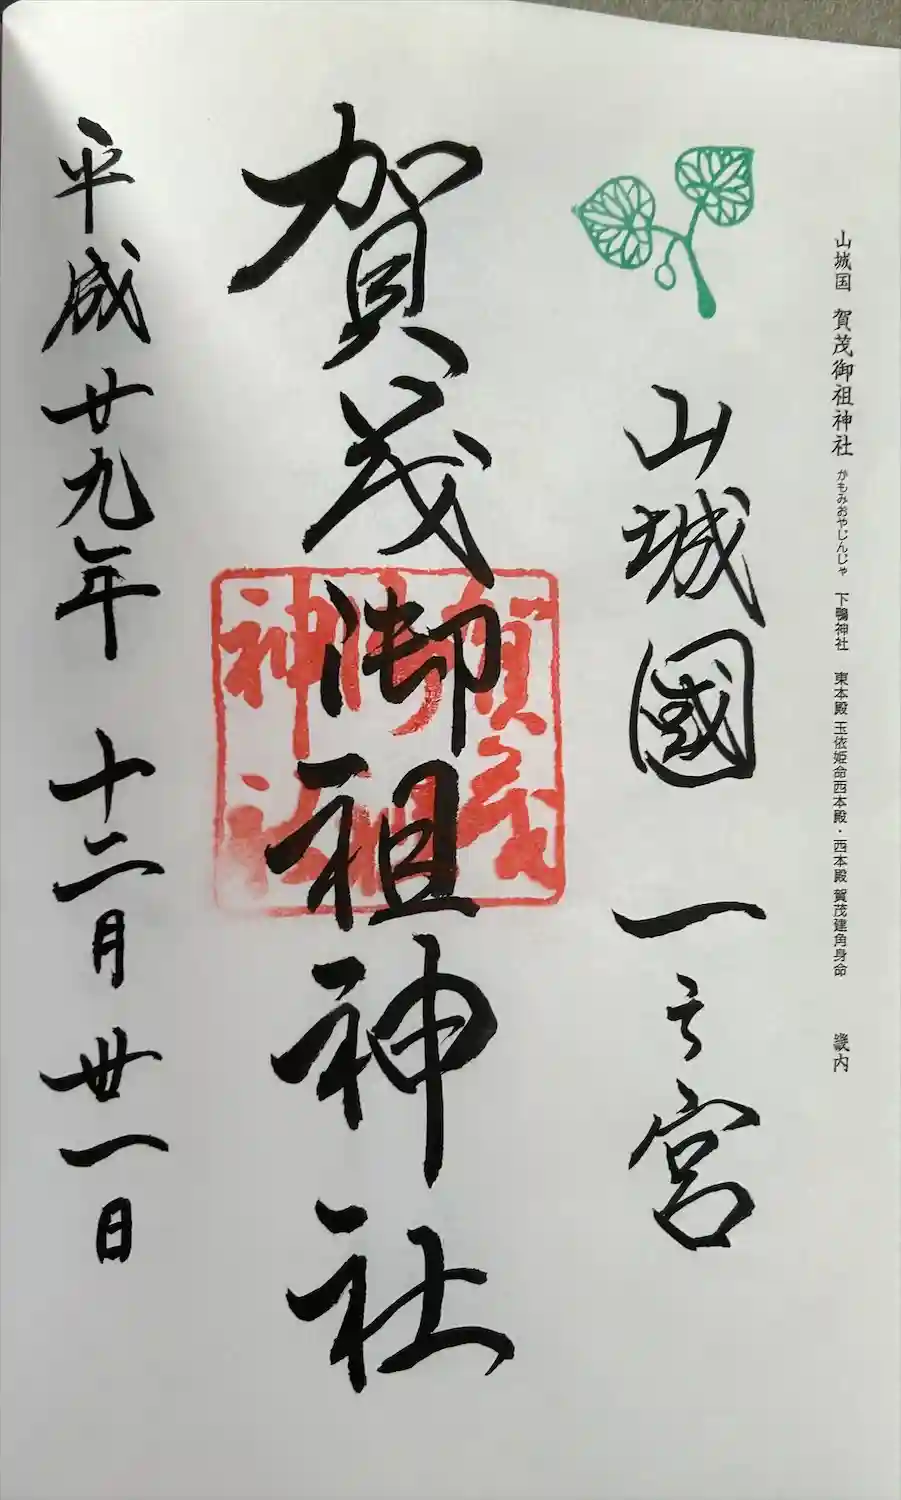 山城国 賀茂御祖神社 かもみおやじんじゃ 下鴨神社 東本殿 玉依姫命西本殿・西本殿 賀茂建角身命 畿内
山城國 一之宮
賀茂御祖神社
賀茂
御祖
神社
平成廿九年 十二月 丗一日